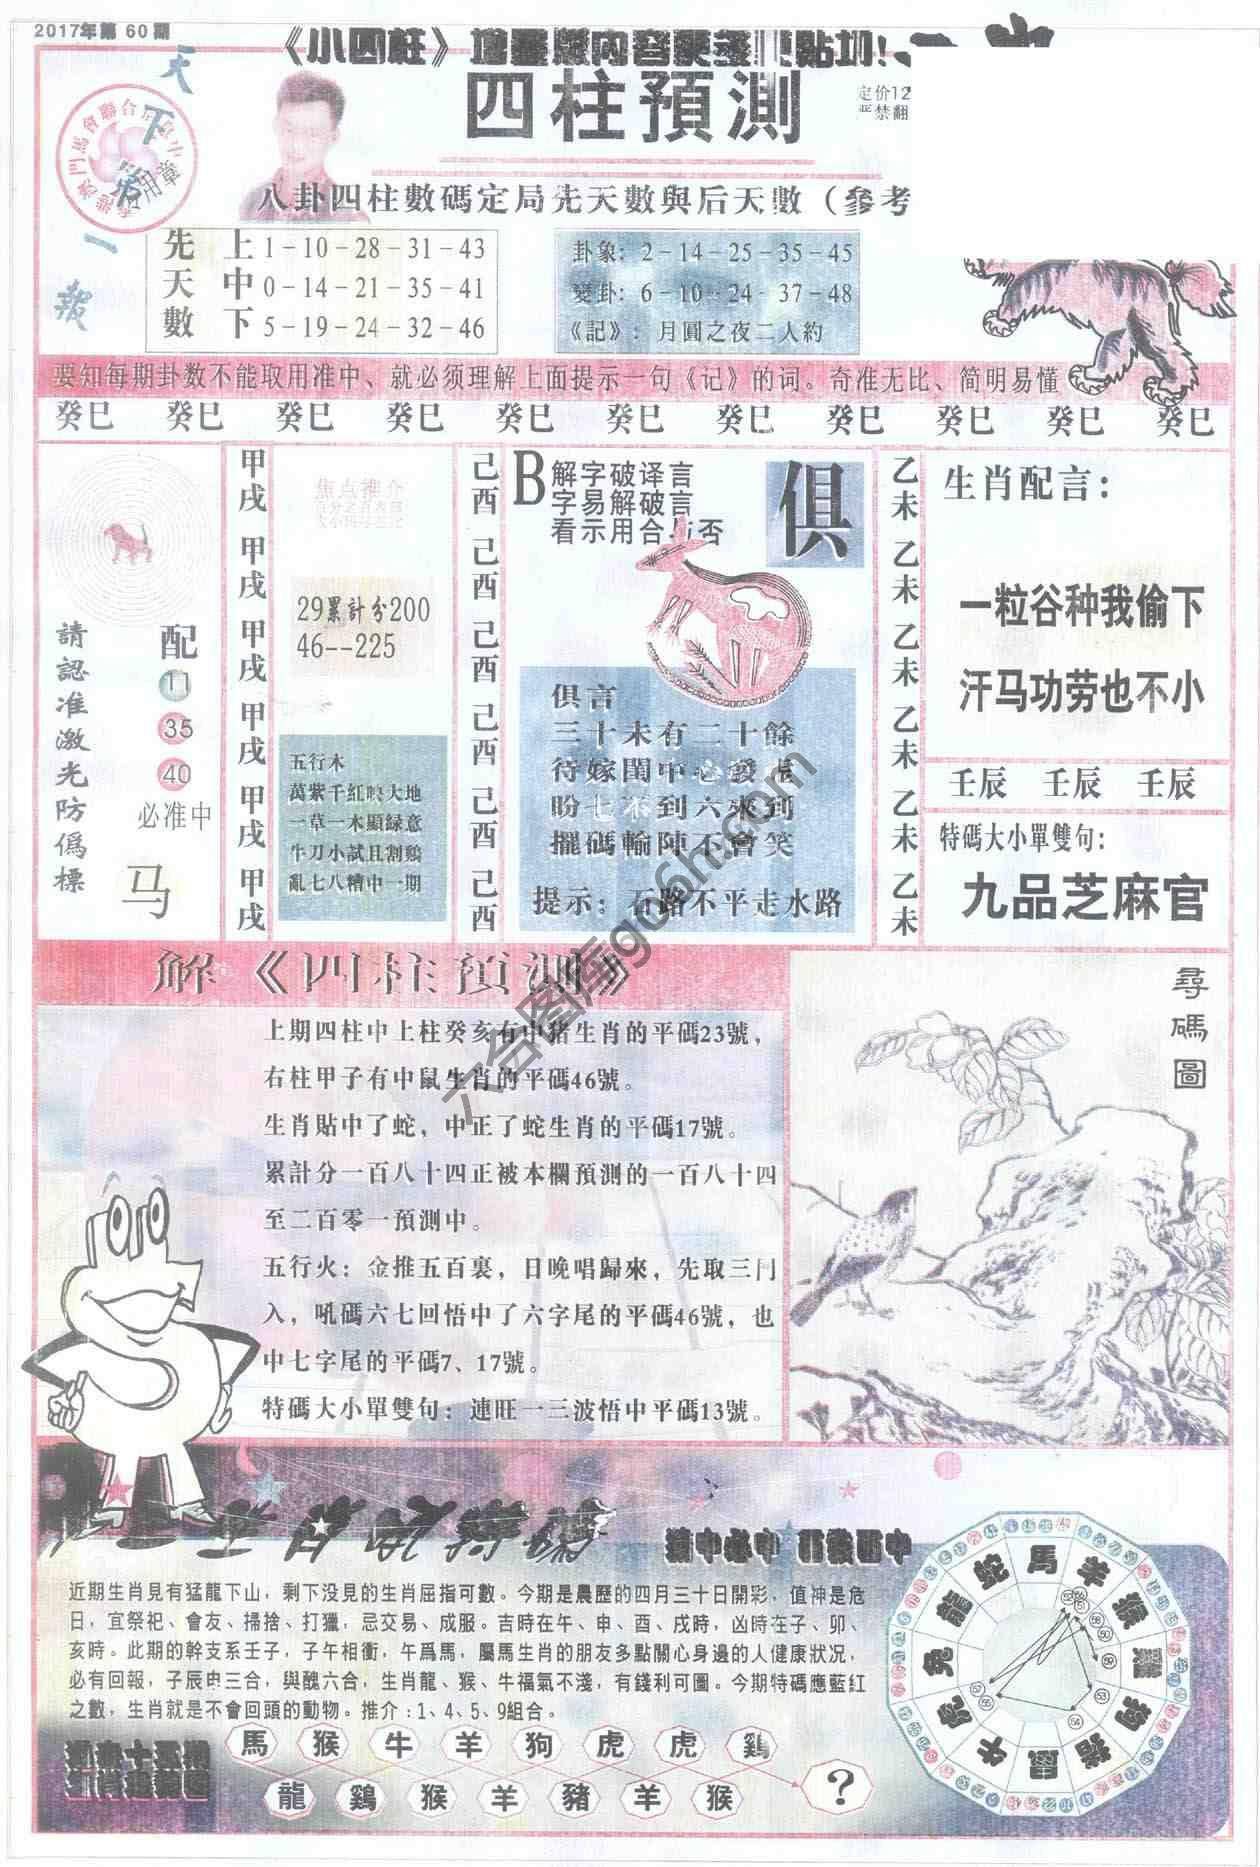 2017年第 60 期
天下第一報
四柱預測
定价12
严禁翻
八卦四柱數碼定局先天數與后天數（參考
先天數
上 1－10－28－31－43
中 0－14－21－35－41
下 5－19－24－32－46
卦象：2－14－25－35－45
變卦：6－10－24－37－48
《記》：月圓之夜二人約
要知每期卦数不能取用准中、就必须理解上面提示一句《记》的词。奇准无比、简明易懂
癸巳 癸巳 癸巳 癸巳 癸巳 癸巳 癸巳 癸巳 癸巳 癸巳 癸巳
請認准激光防僞標
配
11
35
40
必准中
马
甲戌 甲戌 甲戌 甲戌 甲戌 甲戌
29累計分200
46--225
五行木
萬紫千紅映大地
一草一木顯緑意
牛刀小試且割鷄
亂七八糟中一期
己酉 己酉 己酉 己酉 己酉 己酉
B
解字破译言
字易解破言
看示用合与否
俱
俱言
三十未有二十餘
待嫁閨中心發慌
盼七不到六來到
擺碼輸陣不會笑
提示：石路不平走水路
乙未 乙未 乙未 乙未 乙未 乙未
生肖配言：
一粒谷种我偷下
汗马功劳也不小
壬辰 壬辰 壬辰
特碼大小單雙句：
九品芝麻官
解《四柱預測》
上期四柱中上柱癸亥有中猪生肖的平碼23號，
右柱甲子有中鼠生肖的平碼46號。
生肖貼中了蛇，中正了蛇生肖的平碼17號。
累計分一百八十四正被本欄預測的一百八十四
至二百零一預測中。
五行火：金推五百裏，日晚唱歸來，先取三門
入，吼碼六七回悟中了六字尾的平碼46號，也
中七字尾的平碼7、17號。
特碼大小單雙句：連旺一三波悟中平碼13號。
尋碼圖
近期生肖見有猛龍下山，剩下没見的生肖屈指可數。今期是農歷的四月三十日開彩，值神是危
日，宜祭祀、會友、掃捨、打獵，忌交易、成服。吉時在午、申、酉、戌時，凶時在子、卯、
亥時。此期的幹支系壬子，子午相衝，午爲馬，屬馬生肖的朋友多點關心身邊的人健康狀况，
必有回報，子辰申三合，與醜六合，生肖龍、猴、牛福氣不淺，有錢利可圖。今期特碼應藍紅
之數，生肖就是不會回頭的動物。推介：1、4、5、9組合。
馬 猴 牛 羊 狗 虎 虎 鷄
龍 鷄 猴 羊 豬 羊 猴
?
六合图库go6h.com